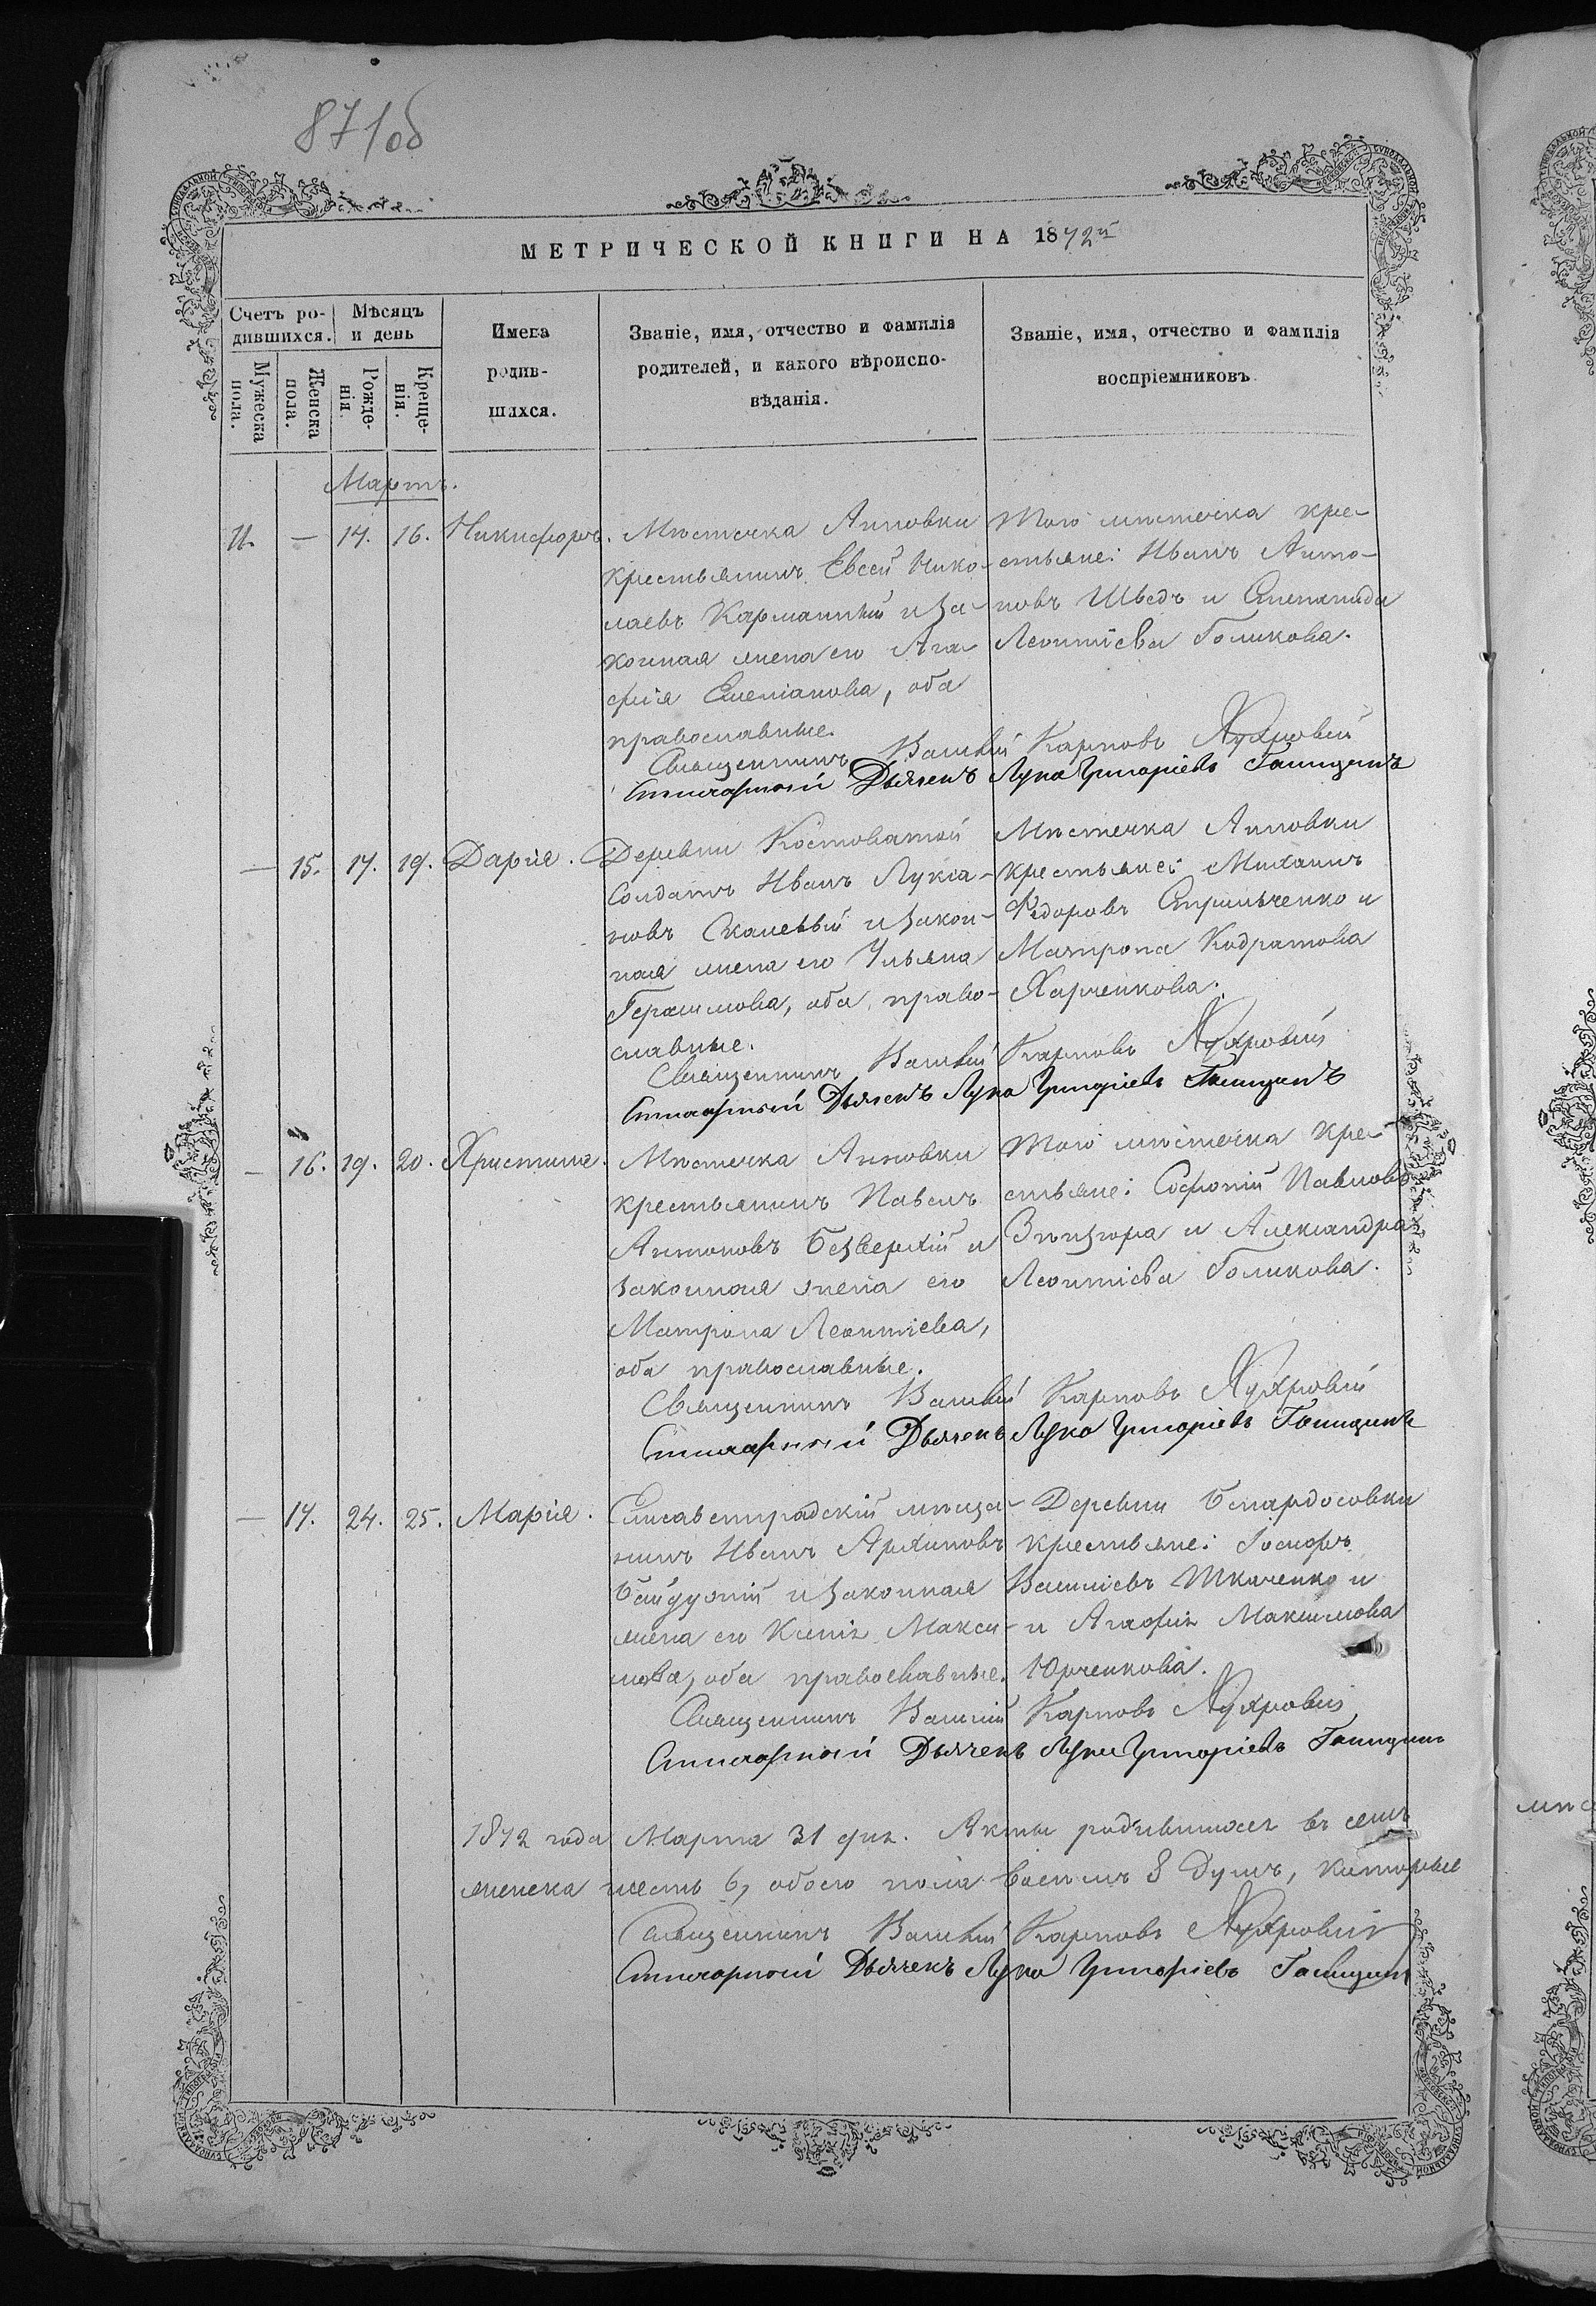 871 об
МЕТРИЧЕСКОЙ КНИГИ НА 1872й
Счетъ родившихся.
Мѣсяцъ и день
Имена родившихся.
Званіе, имя, отчество и фамилія родителей, и какого вѣроисповѣданія.
Званіе, имя, отчество и фамилія воспріемниковъ
Мужеска пола.
Женска пола.
Рожденія.
Крещенія.
Мартъ.
11. — 14. 16. Никифоръ.
Мѣстечка Анновки
крестьянинъ Евсей Нико-
лаевъ и за-
конная жена его Ага-
фія Емеліанова, оба
православные.
Того мѣстечка кре-
стьяне: Иванъ Анто-
новъ Шведъ и Епистима
Леонтіева Голикова.
Священникъ Василій Карповъ
Стихарный Дьячекъ Лука Григоріевъ Голицинъ
— 15. 17. 19. Дарія.
Деревни Костоватой
Солдатъ Иванъ Лукіа-
новъ и закон-
ная жена его Ульяна
Герасимова, оба право-
славные.
Мѣстечка Анновки
крестьяне: Михаилъ
Федоровъ Стрильченко и
Матрона Кодратова
Харченкова.
Священникъ Василій Карповъ
Стихарный Дьячекъ Лука Григоріевъ Голицинъ
— 16. 19. 20. Христина.
Мѣстечка Анновки
крестьянинъ Павелъ
Антоновъ Безверхій и
законная жена его
Матрона Леонтіева,
оба православные.
Того мѣстечка кре-
стьяне: Софоній Павловъ
и Александра
Леонтіева Голикова.
Священникъ Василій Карповъ
Стихарный Дьячекъ Лука Григоріевъ Голицинъ
— 17. 24. 25. Марія.
Елисаветградскій мѣща-
нинъ Иванъ Архиповъ
и законная
жена его Ксенія Макси-
мова, оба православные.
Деревни
крестьяне: Іосифъ
Василіевъ Ткаченко и
и Агафія Максимова
Юрченкова.
Священникъ Василій Карповъ
Стихарный Дьячекъ Лука Григоріевъ Голицинъ
1872 года Марта 31 дня. Акты родившихся въ семъ
женска шесть 6, обоего пола восемь 8 душъ, которые
Священникъ Василій Карповъ
Стихарный Дьячекъ Лука Григоріевъ Голицинъ